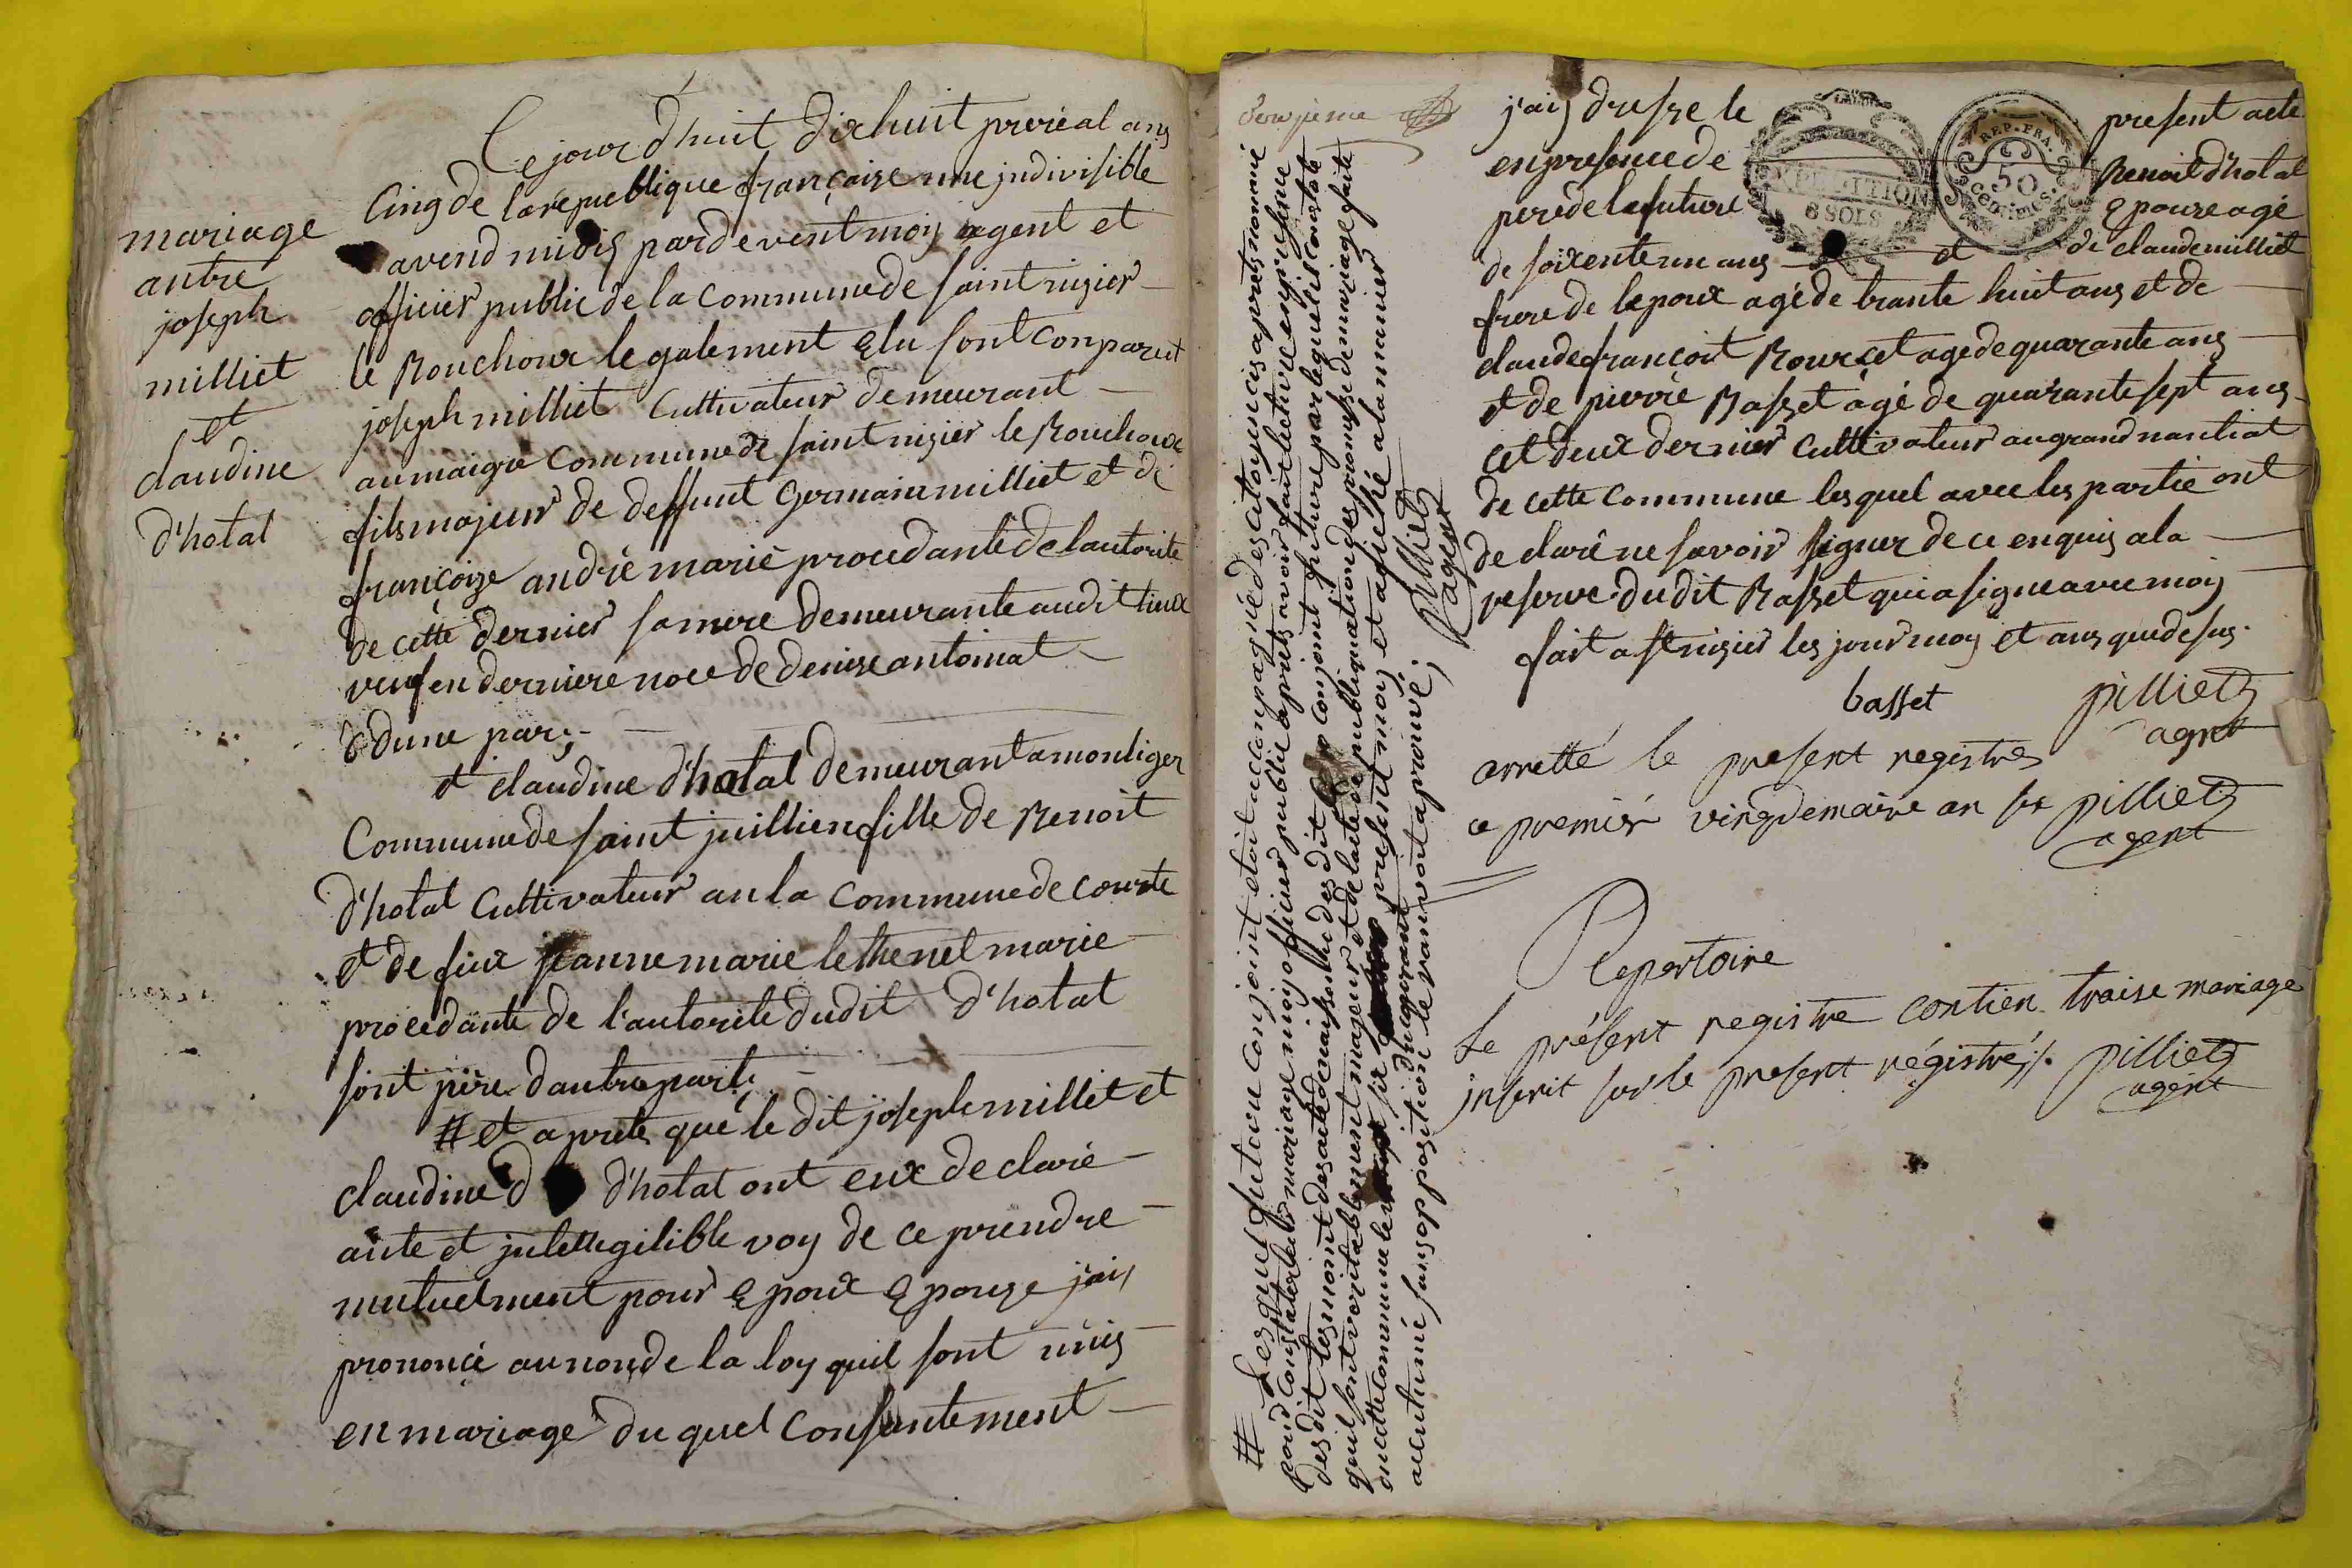 mariage
antre
joseph
milliet
et
claudine
d'hotal
Ce jourd'huit dixhuit preréal ans
Cinq de la republique françaize une jndivisible
avend midis pardevent moy agent et
officier public de la commune de saint nizier
le Bouchoux legalement élu sont conparut
joseph milliet Cultivateur demeurant
au maigre commune de saint nizier le Bouchoux
fils majeur de deffunt Germain milliet et de
françoize andrè marié procedante de lautorite
de cette dernier sa mere demeurante audit lieux
veuf en derniere noce de denise antoinat
dune par;
et claudine d'hotal demeurant a monliger
Commune de saint juillien fille de Benoit
d'hotal Cultivateur an la commune de courte
et de feux jeanne marie lethenet marie
procedante de l'autorite dudit d'hotal
sont père dautre part;
# et aprets que le dit joseph milliet et
claudine d d'hotal ont eux declaré
aute et julettegilible voy de ce prendre
mutuelment pour époux épouze jai
prononcé au non de la loy quil sont unis
en mariage du quel consantement
deuxieme
# Lesquel futeur conjoint etoit accompagné des citoyens cy aprets nommé
pour constater leur mariage moy officier public aprets avoir fait lecture en presense
des dit tesmoint des acte de naissance des dit conjoint future par lequel il constate
quil sont veritablement mageur et de lacte de publiquation des promesse de mariage faite
en cette commune le six present moy et afiché a la manier
accutumé sans oppositions le ranvoit aprouvé;
du courant
pilliet
agent
j'ais dresse le present acte
EXPEDITION
8 SOLS
REP. FRA.
50
Centimes.
en presence de Benoit d'hotal
pere de la future épouze agé
de soixente un ans et de claude milliet
frere de lepoux agé de trante huit ans et de
claude françoit Bourcet age de quarante ans
et de pierre Basset agé de quarante sept ans
cet deux dernier Cultivateur au grand nantiat
de cette commune lesquel avec les partie ont
declaré ne savoir signer de ce enquis a la
reserve du dit Basset qui a signe avec moy
fait a st nizier les jour moy et ans que desus.
basset pilliet
agent
arretté le present registre
ce premier vingdemaire an six pilliet
agent
Repertoire
Le présent registre contien traise mariage
jnscrit sur le present régistré ;. pilliet
agent